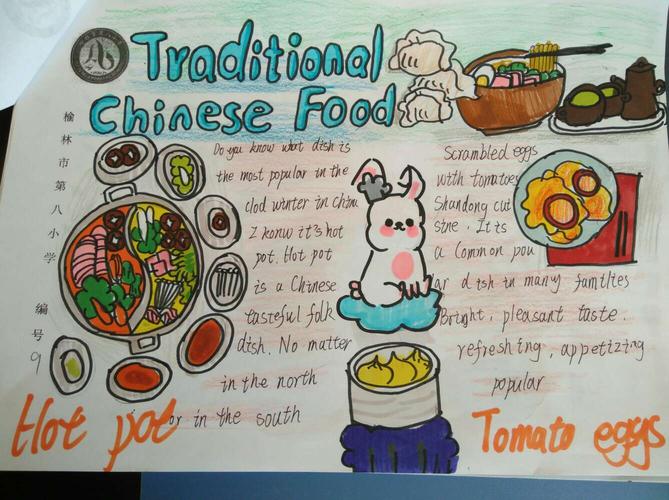 Traditional
Chinese Food
榆林市第八小学 编号9
Do you know what dish is
the most popular in the
clod winter in china
I konw it's hot
pot. Hot pot
is a Chinese
tasteful folk
dish. No matter
in the north
or in the south
Scrambled eggs
with tomatoes
Shandong cui
sine. It is
a Common pou
lar dish in many familtes
Bright, pleasant taste.
refreshing, appetizing
popular
Hot pot
Tomato eggs